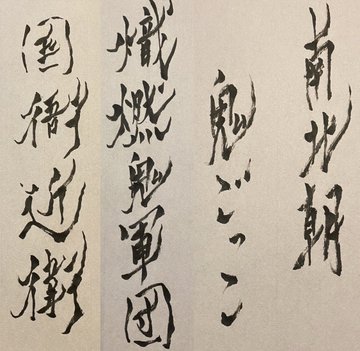 南北朝
鬼ごっこ
熾燃鬼軍団
国衙近衛